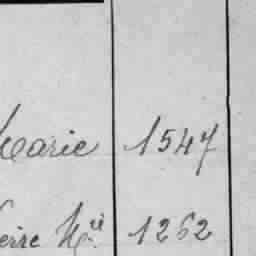 Marie 1547
Pierre M.ie 1262